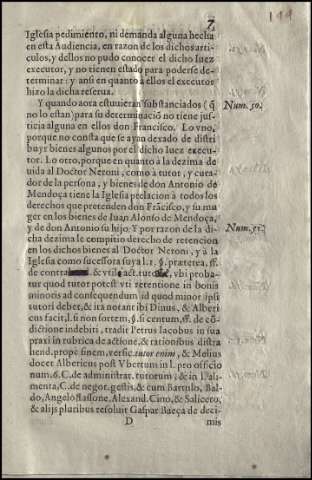 7.
199
Iglesia pedimiento, ni demanda alguna hecha
en esta Audiencia, en razon de los dichos arti-
culos, y dellos no pudo conocer el dicho Iuez
executor, y no tienen estado para poderse de-
terminar: y ansi en quanto à ellos el executor
hizo la dicha reserua.
Y quando aora estuuieran substanciados (q̃
no lo estan) para su determinació no tiene jus-
ticia alguna en ellos don Francisco. Lo vno,
porque no consta que se ayan dexado de distri
buyr bienes algunos por el dicho Iuez execu-
tor. Lo otro, porque en quanto à la dezima de
uida al Doctor Neroni, como à tutor, y cura-
dor de la persona, y bienes de don Antonio de
Mendoça tiene la Iglesia prelacion à todos los
derechos que pretenden don Frãcisco, y su mu
ger en los bienes de Iuan Alonso de Mendoça,
y de don Antonio su hijo: Y por razon de la di-
cha dezima le competio derecho de retencion
en los dichos bienes al Doctor Neroni, y à la
Iglesia como sucessora suya l. 1. §. præterea, ff.
de contra & vtili act. tutelæ, vbi proba-
tur quod tutor potest vti retentione in bonis
minoris ad consequendum id quod minor ipsi
tutori debet, & ita notant ibi Dinus, & Alberi
cus facit, l. si non sortem, §. si centum, ff. de cõ-
dictione indebiti, tradit Petrus Iacobus in sua
praxi in rubrica de actione, & rationibus distra
hend. prope finem, versic. tutor enim, & Melius
docet Albericus post Vbertum in l. pro officio
num. 6. C. de administrat. tutorum, & in l. ali-
menta, C. de negot. gestis, & cum Bartulo, Bal-
do, Angelo Iassone, Alexand. Cino, & Saliceto,
& alijs pluribus resoluit Gaspar Baeça de deci
D
mis
Num. 50.
Num. 51.